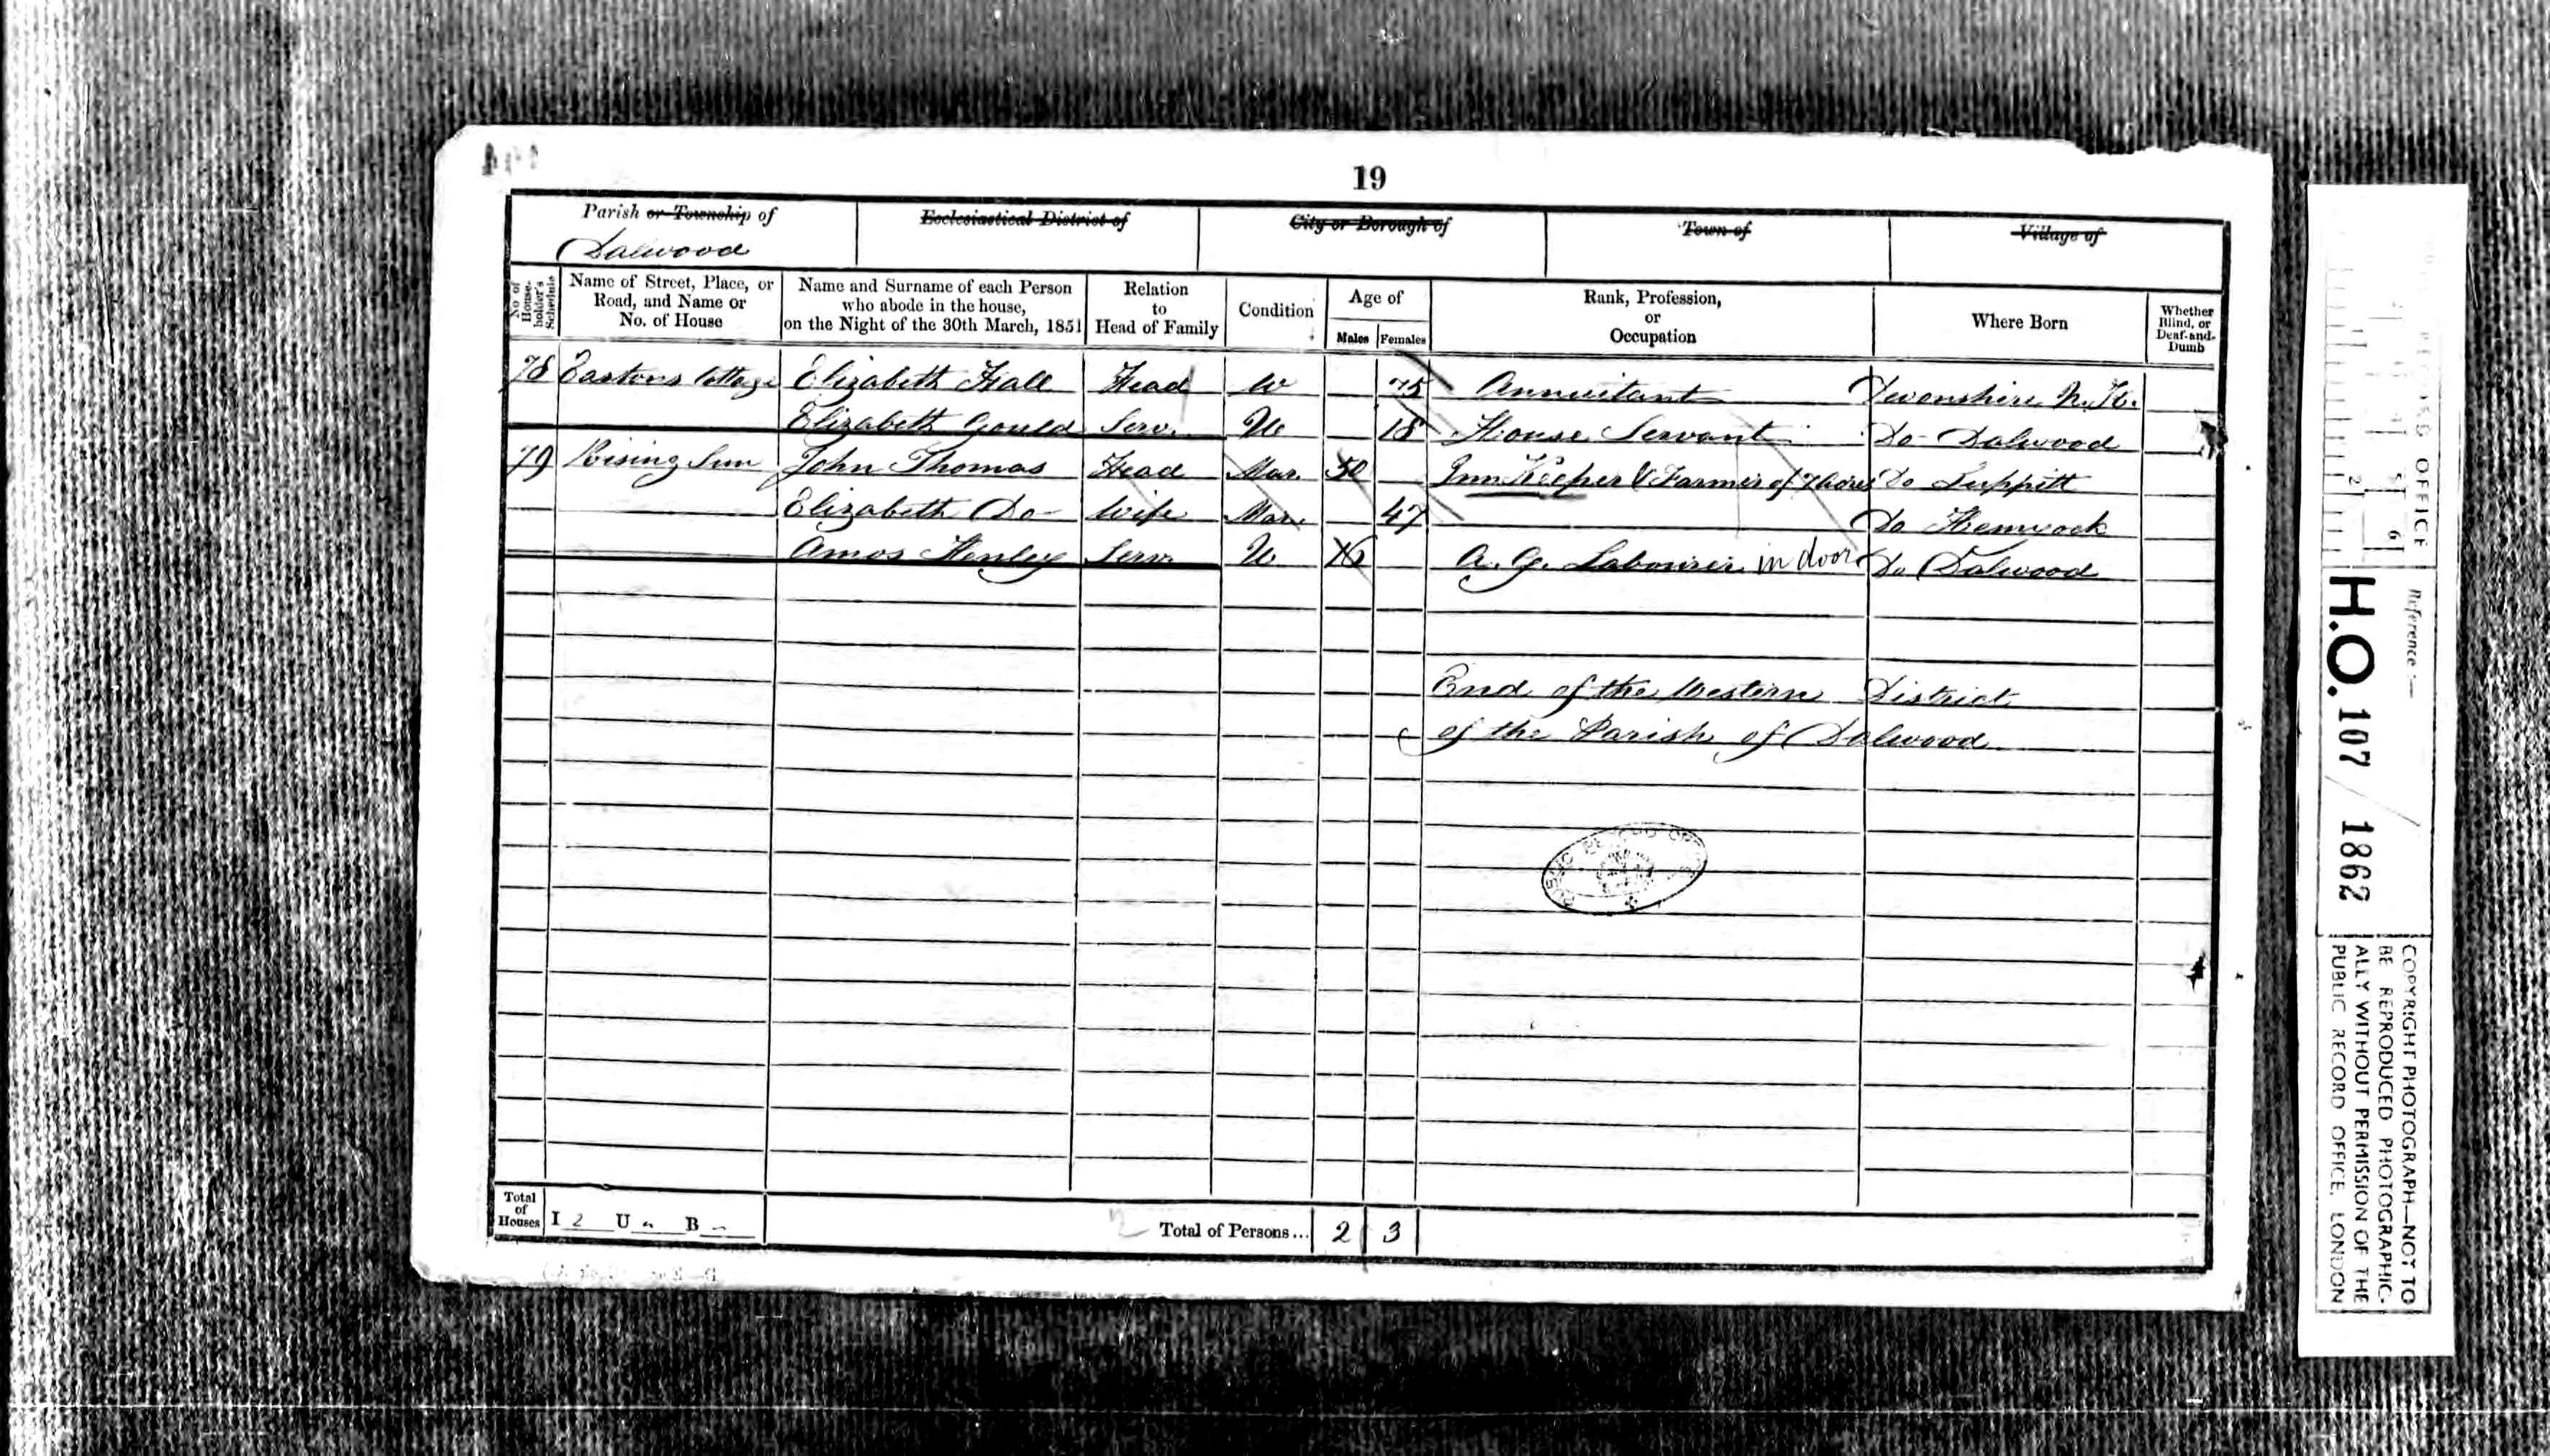 19
Parish or Township of
Dalwood
Ecclesiastical District of
City or Borough of
Town of
Village of
No. of House-holder's Schedule
Name of Street, Place, or Road, and Name or No. of House
Name and Surname of each Person who abode in the house, on the Night of the 30th March, 1851
Relation to Head of Family
Condition
Age of
Males
Females
Rank, Profession, or Occupation
Where Born
Whether Blind, or Deaf-and-Dumb
78 Eastons Cottage Elizabeth Hall Head W 75 Annuitant Devonshire N.K.
Elizabeth Gould Serv. U 18 House Servant Do Dalwood
79 Rising Sun John Thomas Head Mar. 50 Inn Keeper & Farmer of 7 Acres Do Luppitt
Elizabeth Do Wife Mar. 47 Do Hemyock
Amos Henley Serv. U 16 A. G. Labourer in door Do Dalwood
End of the Western District
of the Parish of Dalwood
Total of Houses I 2 U B
Total of Persons... 2 3
RECORD OFFICE
Reference :—
H.O. 107 / 1862
COPYRIGHT PHOTOGRAPH—NOT TO
BE REPRODUCED PHOTOGRAPHIC-
ALLY WITHOUT PERMISSION OF THE
PUBLIC RECORD OFFICE, LONDON